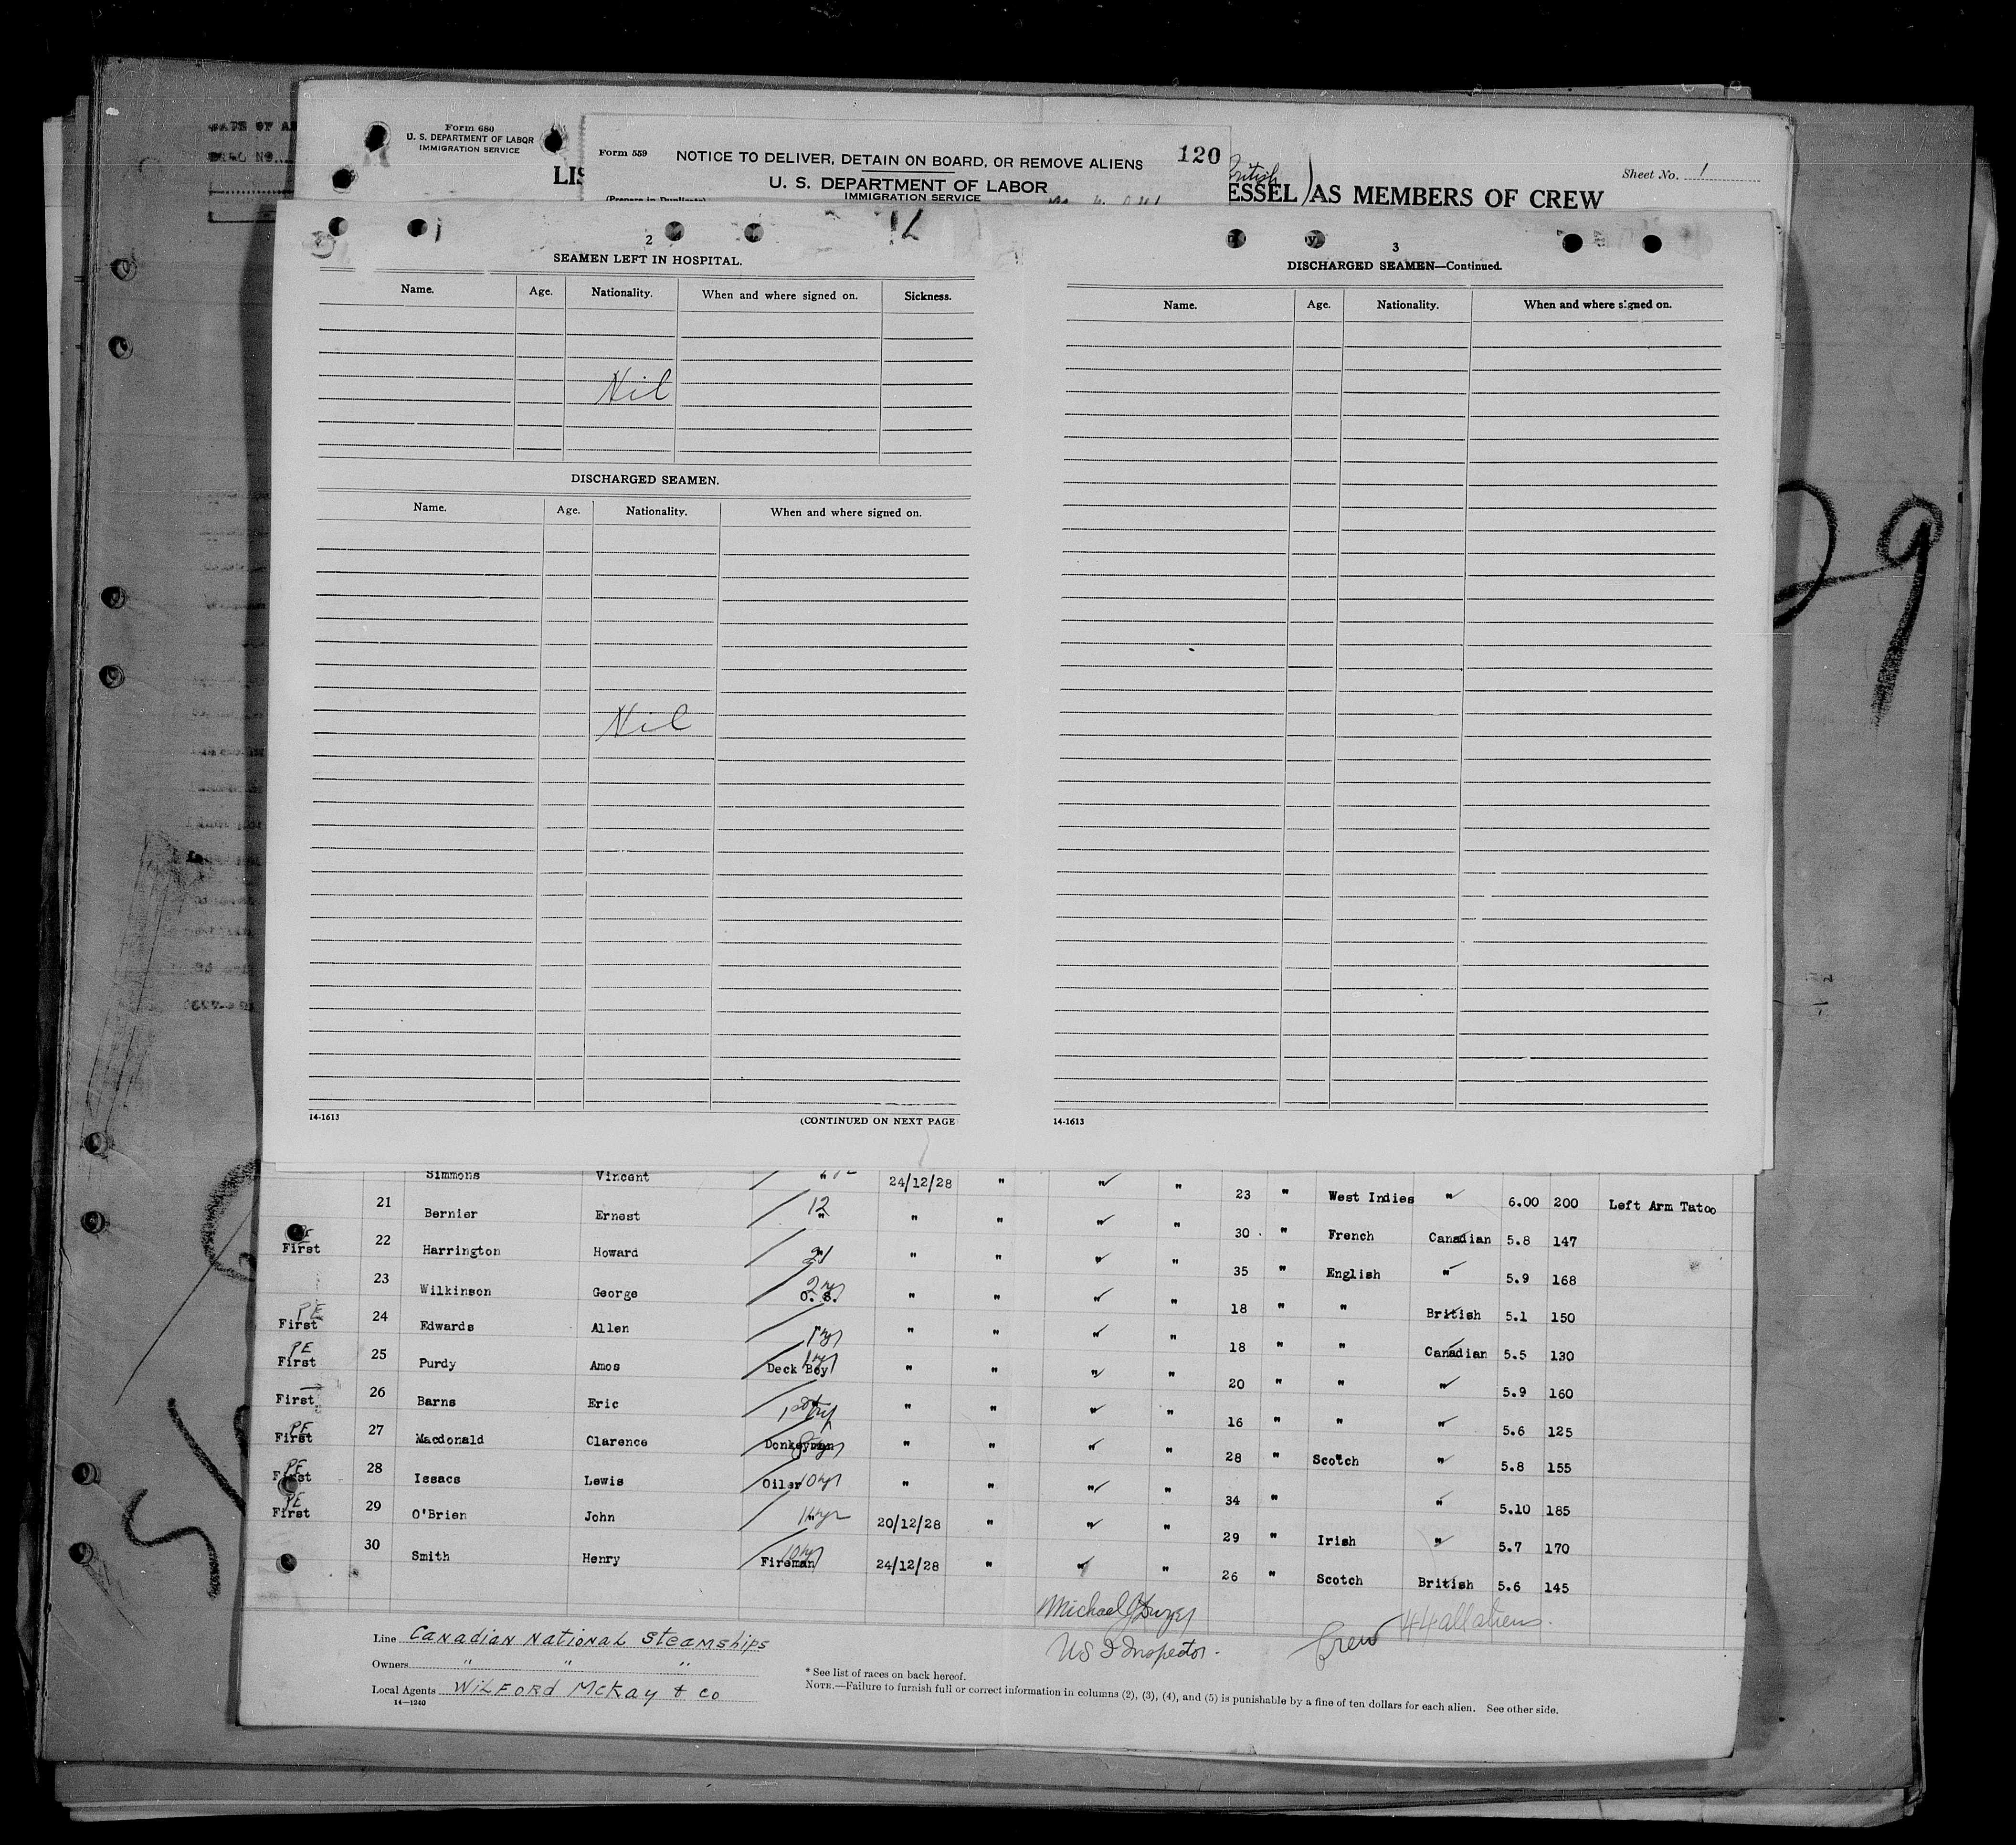 Form 680
U. S. DEPARTMENT OF LABOR
IMMIGRATION SERVICE
Form 559
NOTICE TO DELIVER, DETAIN ON BOARD, OR REMOVE ALIENS
120
U. S. DEPARTMENT OF LABOR
IMMIGRATION SERVICE
(Prepare in Duplicate)
LIS
British
ESSEL) AS MEMBERS OF CREW
Sheet No. 1
2
SEAMEN LEFT IN HOSPITAL.
Name. Age. Nationality. When and where signed on. Sickness.
Nil
DISCHARGED SEAMEN.
Name. Age. Nationality. When and where signed on.
Nil
14-1613 (CONTINUED ON NEXT PAGE
3
DISCHARGED SEAMEN—Continued.
Name. Age. Nationality. When and where signed on.
14-1613
29
Simmons Vincent 24/12/28 " " 23 " West Indies " 6.00 200 Left Arm Tatoo
21 Bernier Ernest 12 " " " " " 30 " French Canadian 5.8 147
First 22 Harrington Howard " " " " 35 " English " 5.9 168
23 Wilkinson George 2 yrs O. S. " " " " 18 " " British 5.1 150
PE First 24 Edwards Allen 1 yr " " " " 18 " " Canadian 5.5 130
PE First 25 Purdy Amos Deck Boy " " " " 20 " " " 5.9 160
First 26 Barns Eric " " " " 16 " " " 5.6 125
PE First 27 Macdonald Clarence Donkeyman " " " " 28 " Scotch " 5.8 155
PE First 28 Issacs Lewis Oiler 10 yr " " " " 34 " " 5.10 185
PE First 29 O'Brien John 20/12/28 " " " 29 " Irish " 5.7 170
30 Smith Henry Fireman 10 yr 24/12/28 " " " 26 " Scotch British 5.6 145
Michael
US I Inspector.
Crew 44 all aliens.
Line Canadian National Steamships
Owners " " "
Local Agents Wilford McKay & Co
14—1240
* See list of races on back hereof.
NOTE.—Failure to furnish full or correct information in columns (2), (3), (4), and (5) is punishable by a fine of ten dollars for each alien. See other side.